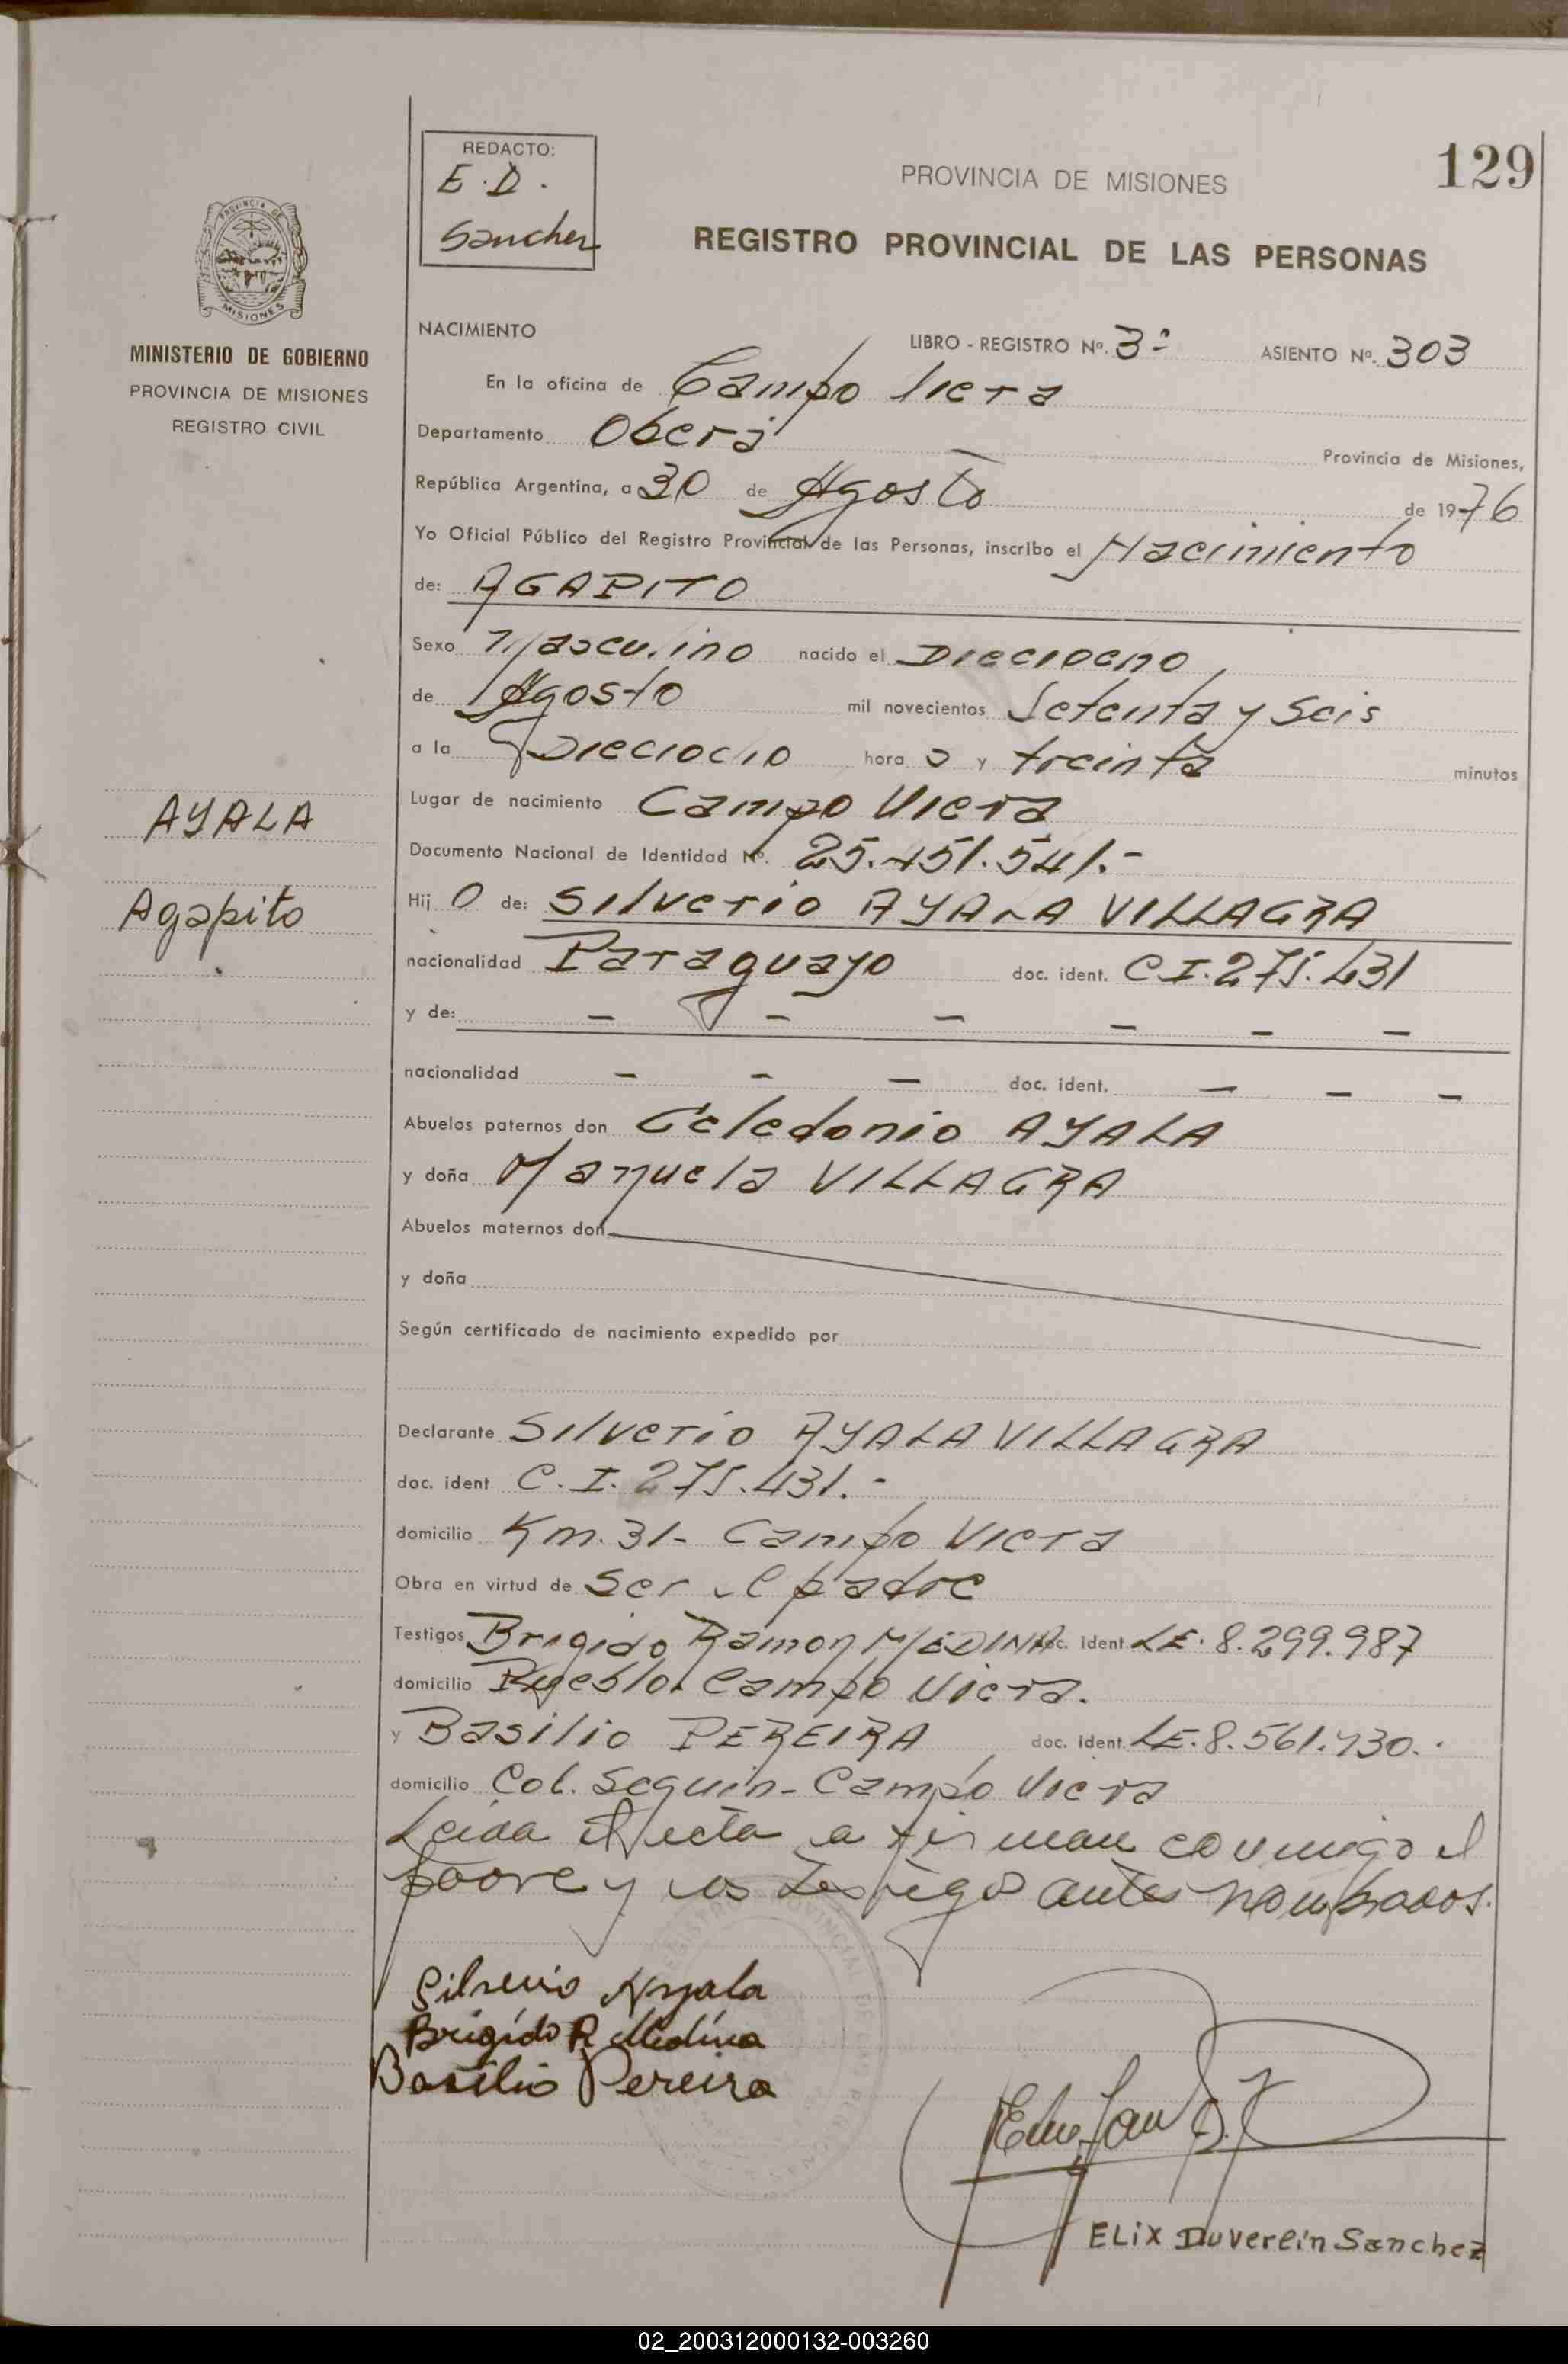 129
REDACTO:
E. D.
Sanchez
PROVINCIA DE MISIONES
REGISTRO PROVINCIAL DE LAS PERSONAS
PROVINCIA DE
MISIONES
MINISTERIO DE GOBIERNO
PROVINCIA DE MISIONES
REGISTRO CIVIL
NACIMIENTO LIBRO - REGISTRO Nº. 3º ASIENTO Nº. 303
En la oficina de Campo Viera
Departamento Oberá Provincia de Misiones,
República Argentina, a 30 de Agosto de 1976
Yo Oficial Público del Registro Provincial de las Personas, inscribo el Nacimiento
de: AGAPITO
Sexo Masculino nacido el Dieciocho
de Agosto mil novecientos Setenta y Seis
a la Dieciocho hora s y treinta minutos
Lugar de nacimiento Campo Viera
Documento Nacional de Identidad Nº. 25.451.541.-
AYALA
Agapito
Hij o de: Silverio AYALA VILLAGRA
nacionalidad Paraguayo doc. ident. C I. 275.431
y de: - - - - - -
nacionalidad - - - doc. ident. - - -
Abuelos paternos don Celedonio AYALA
y doña Manuela VILLAGRA
Abuelos maternos don
y doña
Según certificado de nacimiento expedido por
Declarante Silverio AYALA VILLAGRA
doc. ident C. I. 275.431.-
domicilio Km. 31- Campo Viera
Obra en virtud de ser el padre
Testigos Brigido Ramon MEDINA doc. ident LE. 8.299.987
domicilio Pueblo Campo Viera.
y Basilio PEREIRA doc. ident. LE. 8.561.430.
domicilio Col. Seguin- Campo Viera
Leida el acta la firman conmigo el
padre y los testigos antes nombrados.
Silverio Ayala
Brigído R Medina
Basilio Pereira
ELiX DuvereinSanchez
02_200312000132-003260